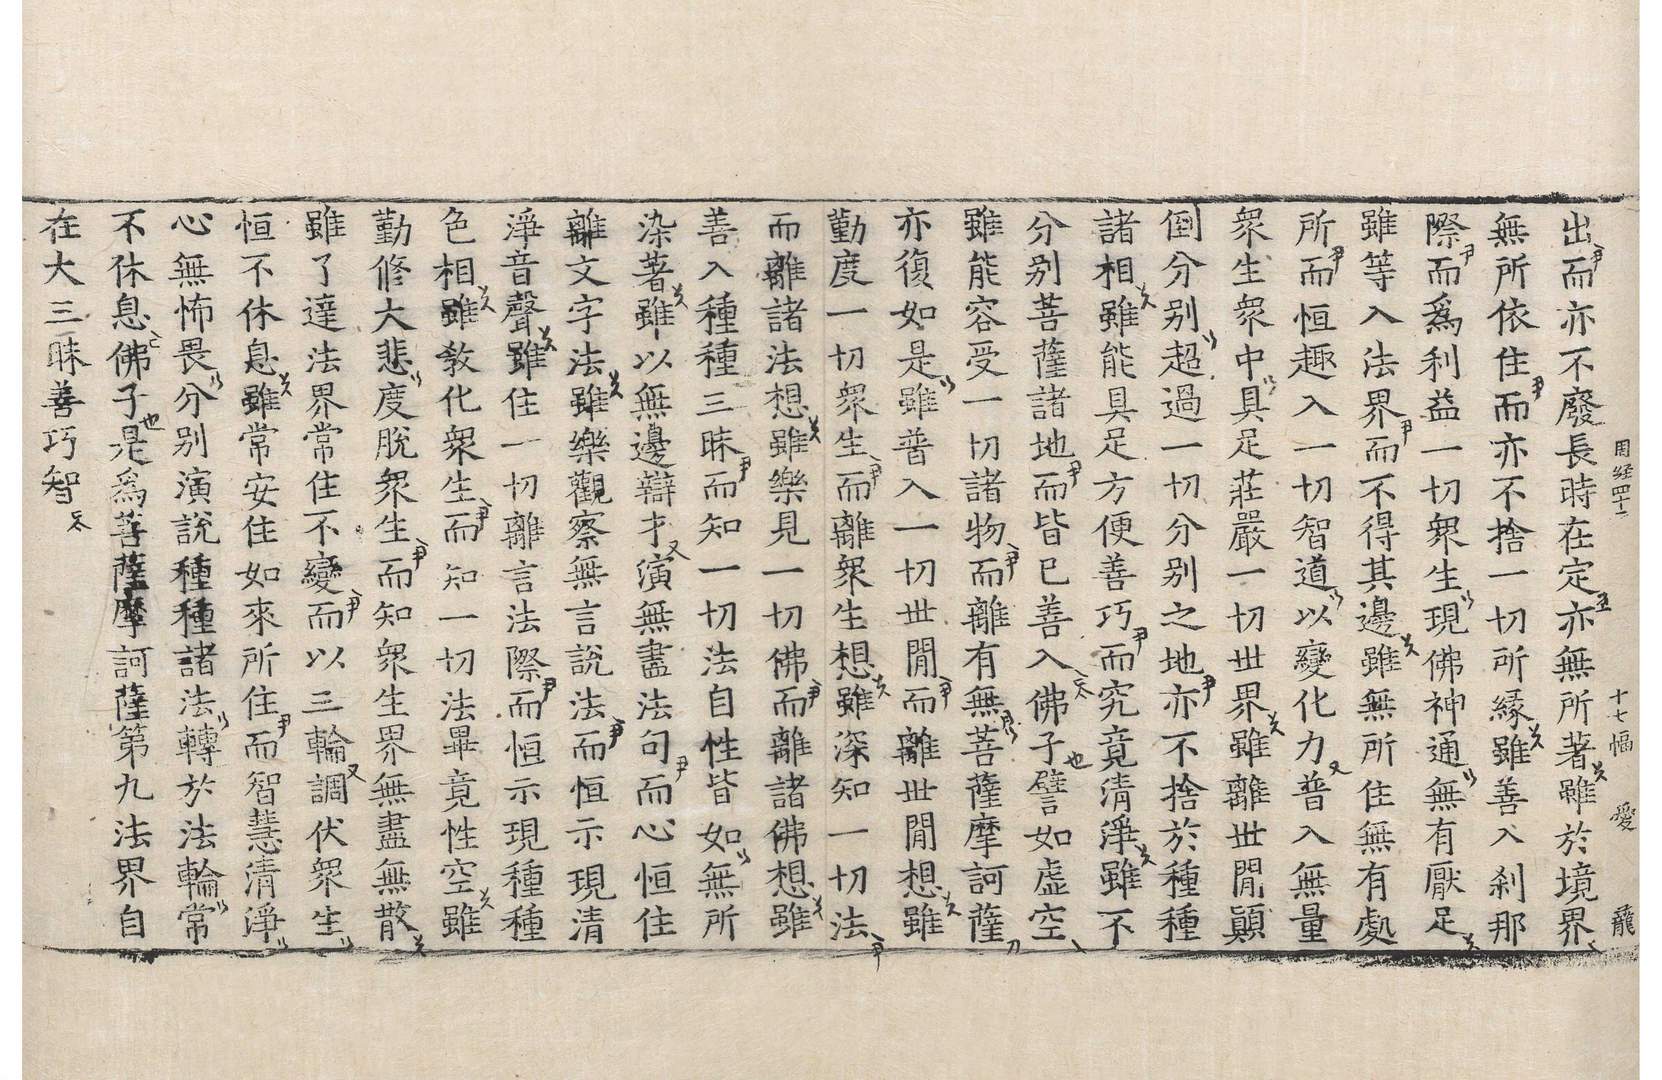 周経四十二 十七幅 愛
出而亦不廢長時在定亦無所著雖於境界
無所依住而亦不捨一切所緣雖善入刹那
際而爲利益一切衆生現佛神通無有厭足
雖等入法界而不得其邊雖無所住無有處
所而恒趣入一切智道以變化力普入無量
衆生衆中具足莊嚴一切世界雖離世閒顚
倒分別超過一切分別之地亦不捨於種種
諸相雖能具足方便善巧而究竟清淨雖不
分別菩薩諸地而皆已善入佛子譬如虛空
雖能容受一切諸物而離有無菩薩摩訶薩
亦復如是雖普入一切世閒而離世閒想雖
勤度一切衆生而離衆生想雖深知一切法
而離諸法想雖樂見一切佛而離諸佛想雖
善入種種三昧而知一切法自性皆如無所
染著雖以無邊辯才演無盡法句而心恒住
離文字法雖樂觀察無言說法而恒示現清
淨音聲雖住一切離言法際而恒示現種種
色相雖敎化衆生而知一切法畢竟性空雖
勤修大悲度脫衆生而知衆生界無盡無散
雖了達法界常住不變而以三輪調伏衆生
恒不休息雖常安住如來所住而智慧清淨
心無怖畏分別演說種種諸法轉於法輪常
不休息佛子是爲菩薩摩訶薩第九法界自
在大三昧善巧智